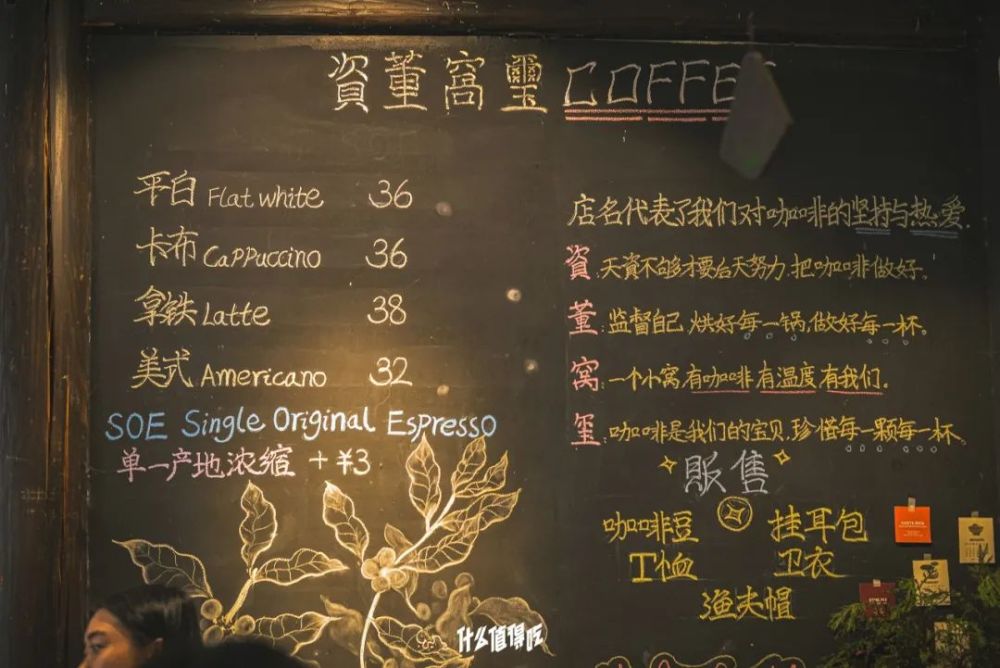 資董窩璽 COFFEE
平白 Flat white 36
卡布 Cappuccino 36
拿铁 Latte 38
美式 Americano 32
SOE Single Original Espresso
单一产地浓缩 +¥3
店名代表了我们对咖啡的坚持与热爱.
資:天資不够才要后天努力,把咖啡做好。
董:监督自己,烘好每一锅,做好每一杯。
窝:一个小窝,有咖啡有温度有我们。
玺:咖啡是我们的宝贝,珍惜每一颗每一杯。
販售
咖啡豆 挂耳包
T恤 卫衣
渔夫帽
什么值得吃